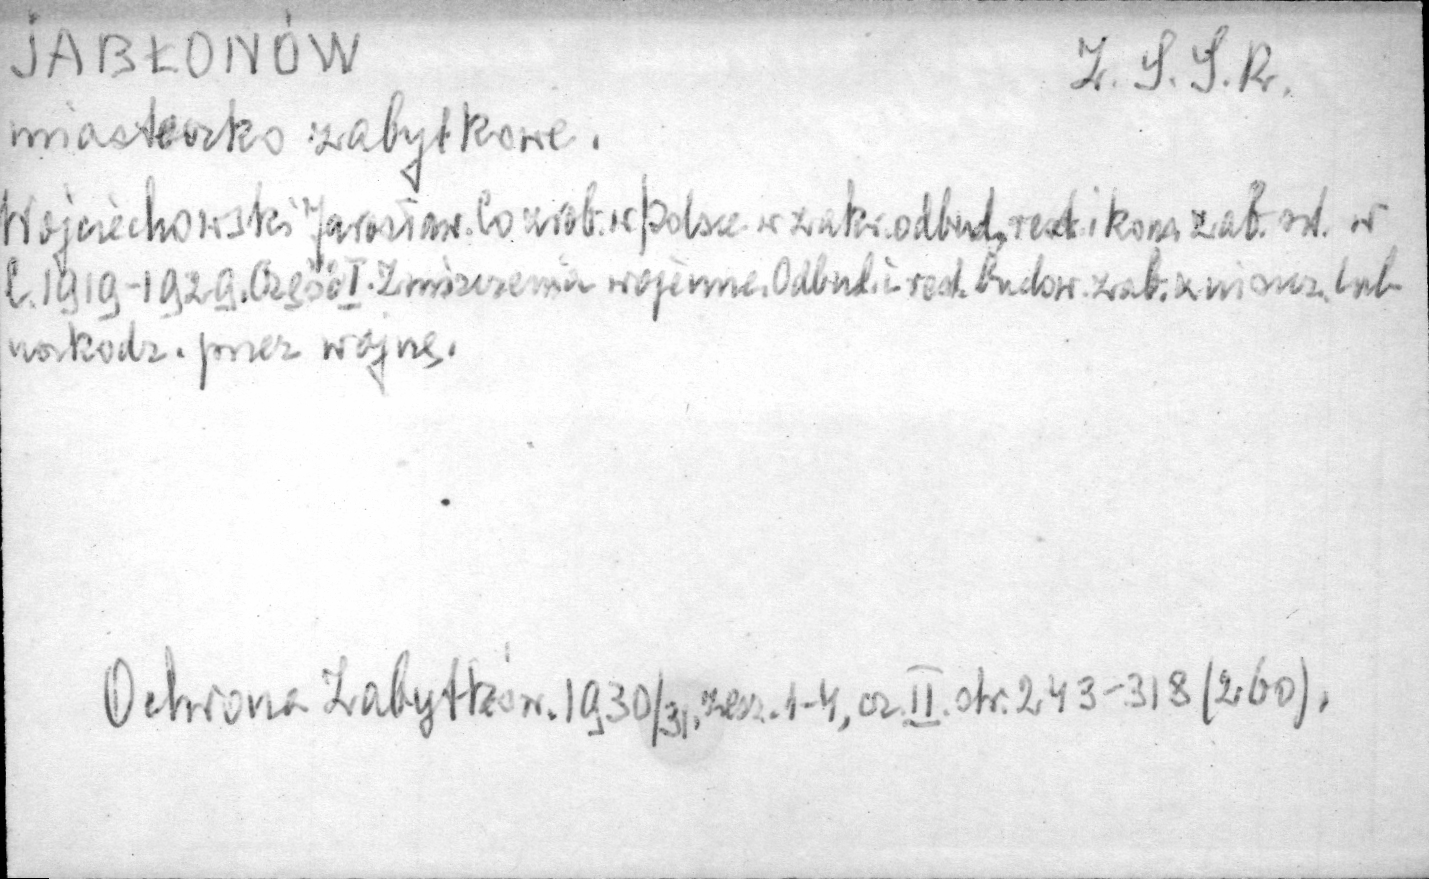 JABŁONÓW
Z. S. S. R.
miasteczko zabytkowe.
Wojciechowski Jarosław. Co zrob. w Polsce w zakr. odbud., rest. i kons. zab. od. w
l. 1919-1929. Część I. Zniszczenia wojenne. Odbud. i rest. budow. zab. zniszcz. lub
uszkodz. przez wojnę.
Ochrona Zabytków. 1930/31, zesz. 1-4, cz. II. str. 243-318 (260).